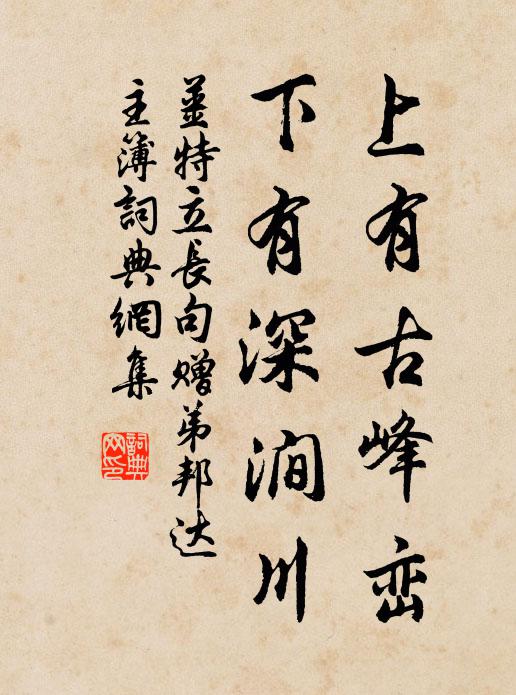 上有古峰峦
下有深涧川
姜特立长句赠弟邦达
主簿詞典網集
詞典网印